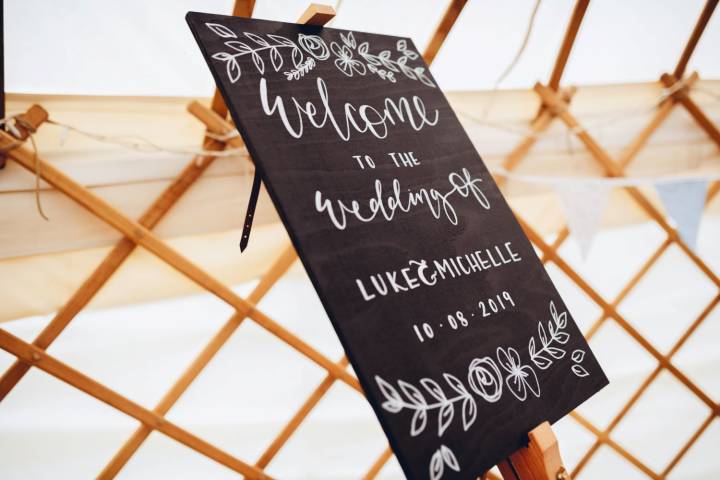 Welcome
TO THE
wedding of
LUKE & MICHELLE
10·08·2019